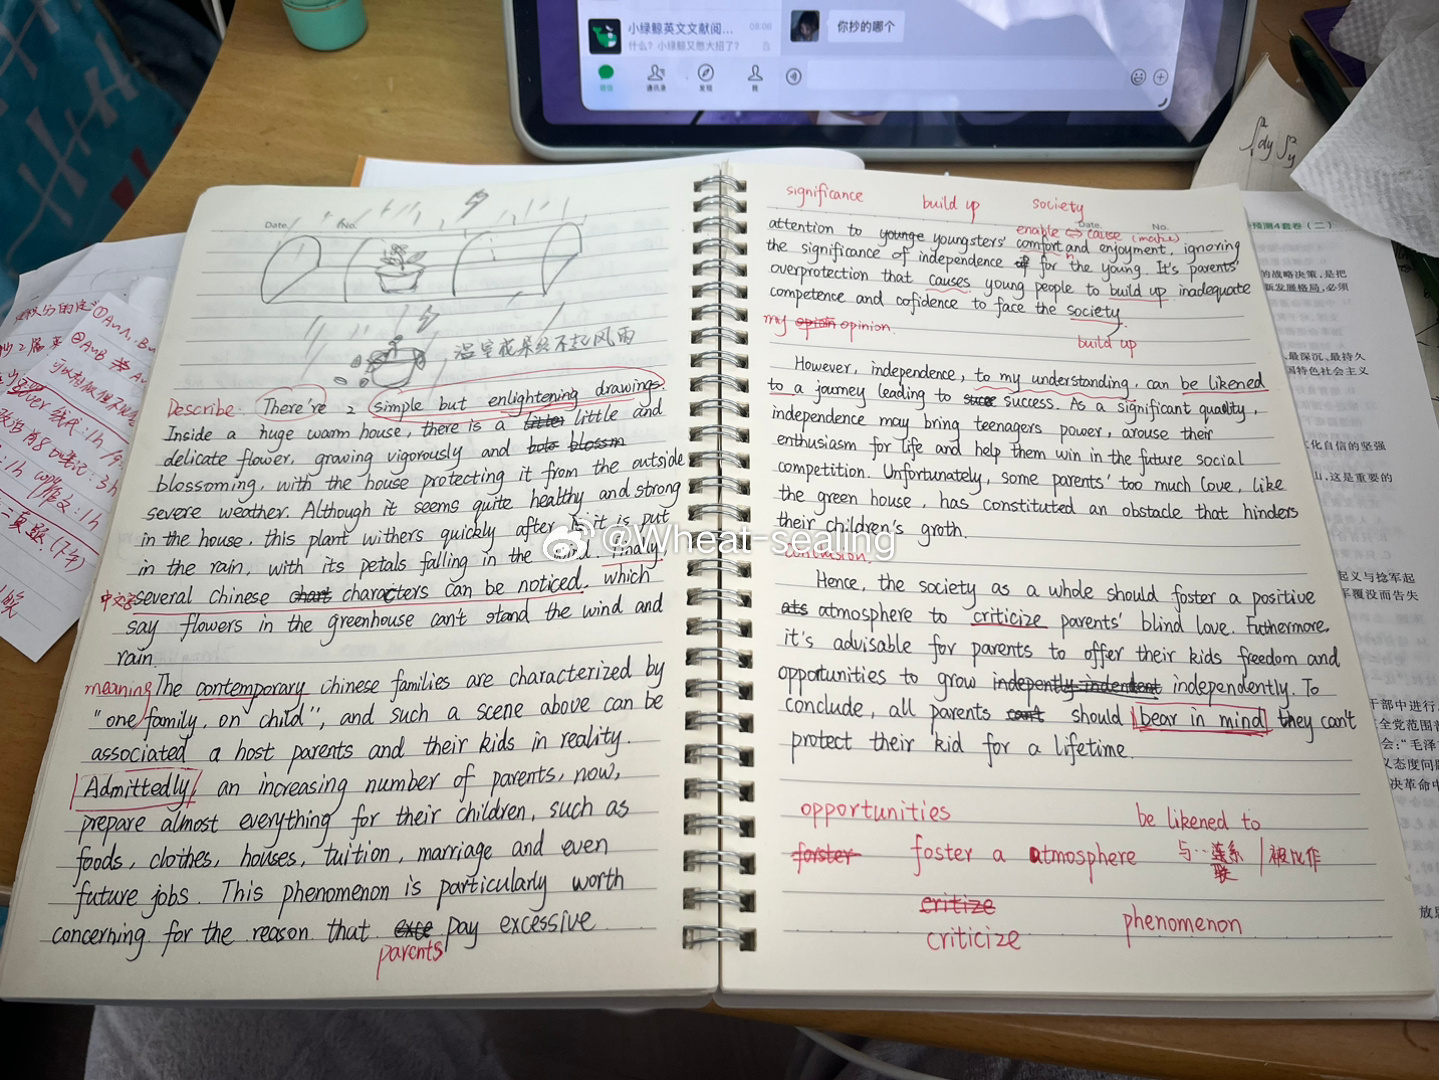 小绿鲸英文文献阅... 08:06
什么？小绿鲸又憋大招了？
你抄的哪个
微信 通讯录 发现 我
Date. No.
温室花朵经不起风雨
Describe. There're 2 simple but enlightening drawings.
Inside a huge warm house, there is a little and
delicate flower, growing vigorously and
blossoming, with the house protecting it from the outside
severe weather. Although it seems quite healthy and strong
in the house, this plant withers quickly after it is put
in the rain, with its petals falling in the wind. Finally,
several chinese characters can be noticed. which
say flowers in the greenhouse can't stand the wind and
rain.
meaning The contemporary chinese families are characterized by
"one family, on child", and such a scene above can be
associated a host parents and their kids in reality.
Admittedly, an increasing number of parents, now,
prepare almost everything for their children, such as
foods, clothes, houses, tuition, marriage and even
future jobs. This phenomenon is particularly worth
concerning for the reason that pay excessive
parents
significance build up society
Date. No.
enable ⇔ cause
attention to youngsters' comfort and enjoyment, ignoring
the significance of independence for the young. It's parents'
overprotection that causes young people to build up inadequate
competence and cofidence to face the society.
my opinion.
build up
However, independence, to my understanding, can be likened
to a journey leading to success. As a significant quality,
independence may bring teenagers power, arouse their
enthusiasm for life and help them win in the future social
competition. Unfortunately, some parents' too much love, like
the green house, has constituted an obstacle that hinders
their children's groth.
@Wheat-sealing
conclusion.
Hence, the society as a whole should foster a positive
atmosphere to criticize parents' blind love. Futhermore,
it's advisable for parents to offer their kids freedom and
opportunities to grow independently. To
conclude, all parents should bear in mind they can't
protect their kid for a lifetime.
opportunities be likened to
forster foster a atmosphere 与…联系 / 被比作
critize
criticize phenomenon
预测4套卷（二）
的战略决策，是把
新发展格局，必须
、最深沉、最持久
国特色社会主义
化自信的坚强
山，这是重要的
起义与捻军起
军覆没而告失